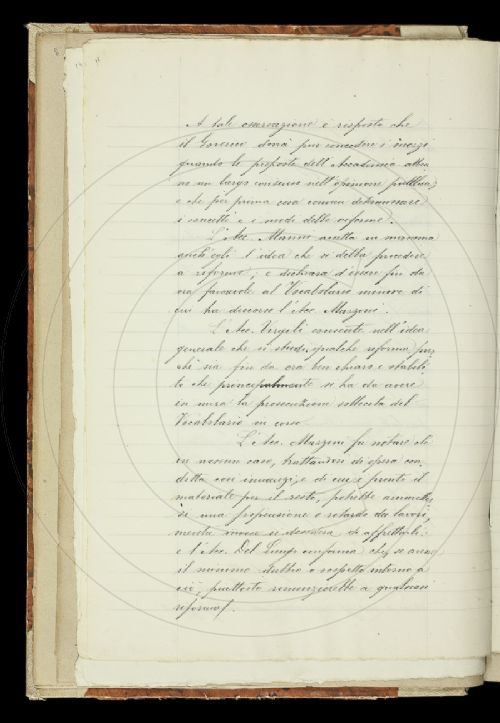 A tale osservazione è risposto che
il Governo dovrà pur concedere i mezzi
quando le proposte dell'Accademia abbia
no un largo consenso nell'opinione pubblica;
e che per prima cosa conviene determinare
i concetti e i modi delle riforme.
L'Acc. Manni accetta in massima
anch'egli l'idea che si debba procedere
a riforme, e dichiara d'essere fin da
ora favorevole al Vocabolario minore di
cui ha discorso l'Acc. Mazzoni.
L'Acc. Vergili consente nell'idea
generale che si studi qualche riforma pur
chè sia fin da ora ben chiaro e stabili
to che principalmente si ha da avere
in mira la prosecuzione sollecita del
Vocabolario in corso.
L'Acc. Mazzoni fa notare che
in nessun caso, trattandosi di opera con
dotta così innanzi, e di cui è pronto il
materiale per il resto, potrebbe ammetter
si una sospensione o ritardo da lavori,
mentre invece si desidera di affrettarli:
e l'Acc. Del Lungo conferma che, se avesse
il minimo dubbio o sospetto intorno a
ciò, piuttosto rinunzierebbe a qualsiasi
riforma.